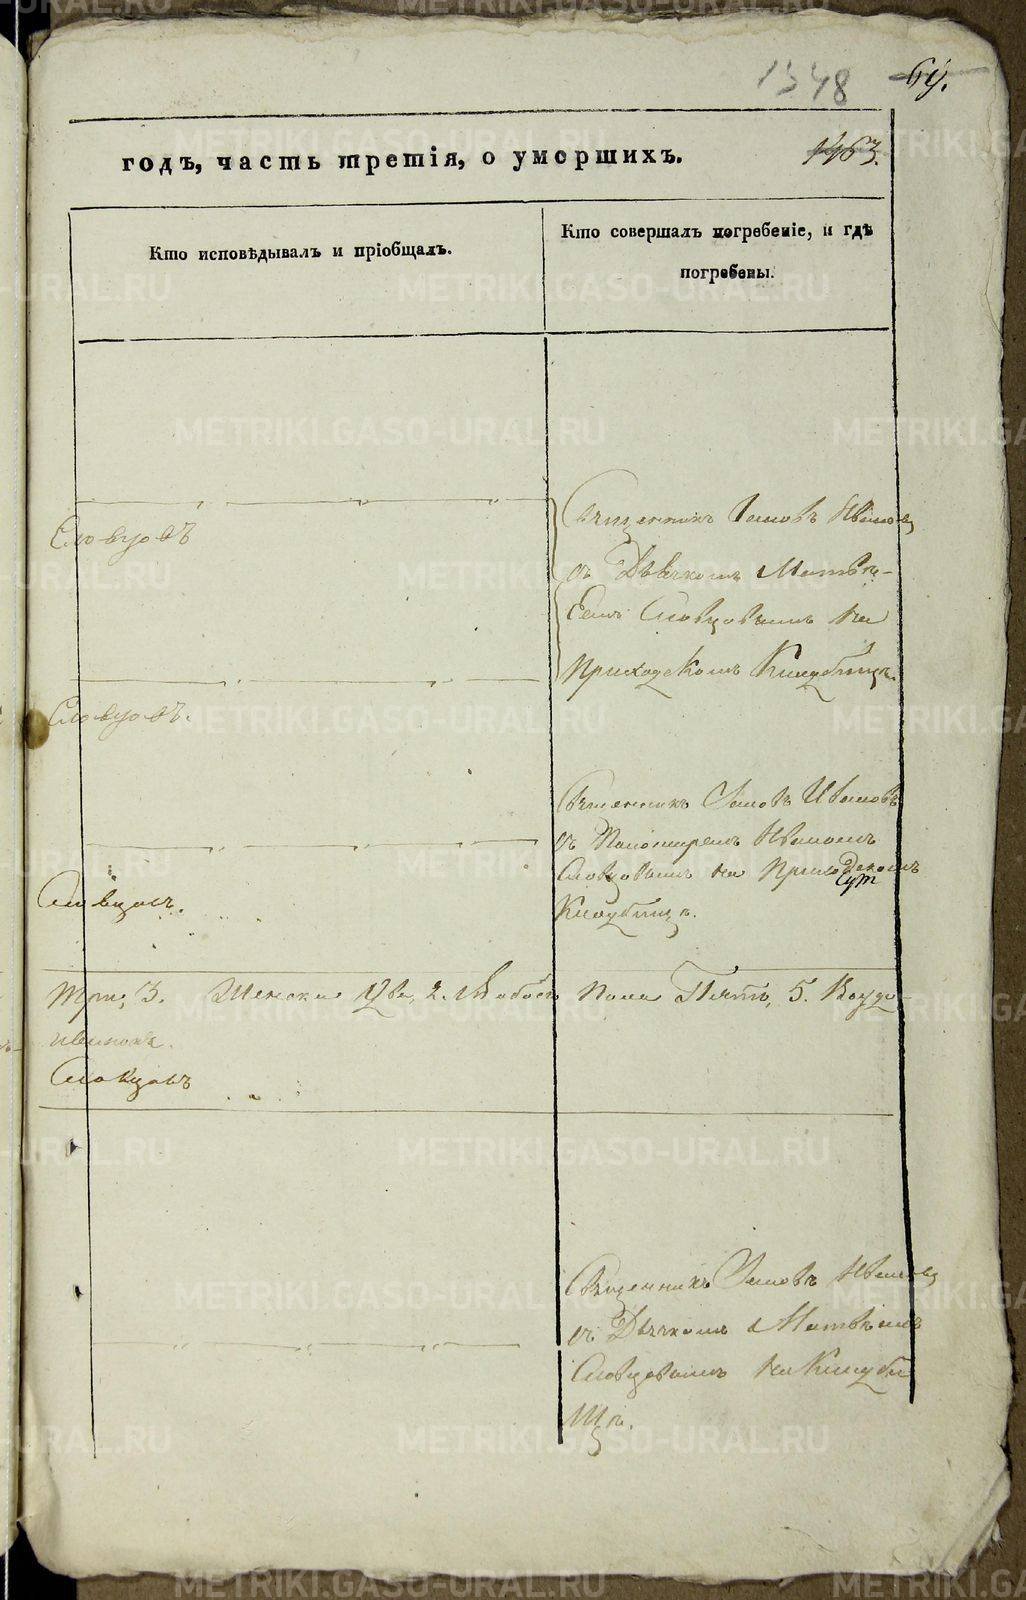 1348
годъ, часть третія, о умершихъ.
1463.
Кто исповѣдывалъ и пріобщалъ.
Кто совершалъ погребеніе, и гдѣ
погребены.
Священникъ Іаковъ Иванов
съ Дьячкомъ Матвѣ-
емъ Словцовымъ на
Приходскомъ Кладбищѣ.
Словцовъ
Словцовъ.
Священникъ Іаковъ Ивановъ
съ Пономаремъ Иваномъ
Словцовымъ на Приходскомъ
Кладбищѣ.
Словцовъ.
Три, 3. Женска Два, 2. Обоего Пола Пять, 5.
Ивановъ.
Словцовъ
Священникъ Іаковъ Иванов
съ Дьячкомъ Матвѣемъ
Словцовымъ на Кладби
щѣ.
METRIKI.GASO-URAL.RU